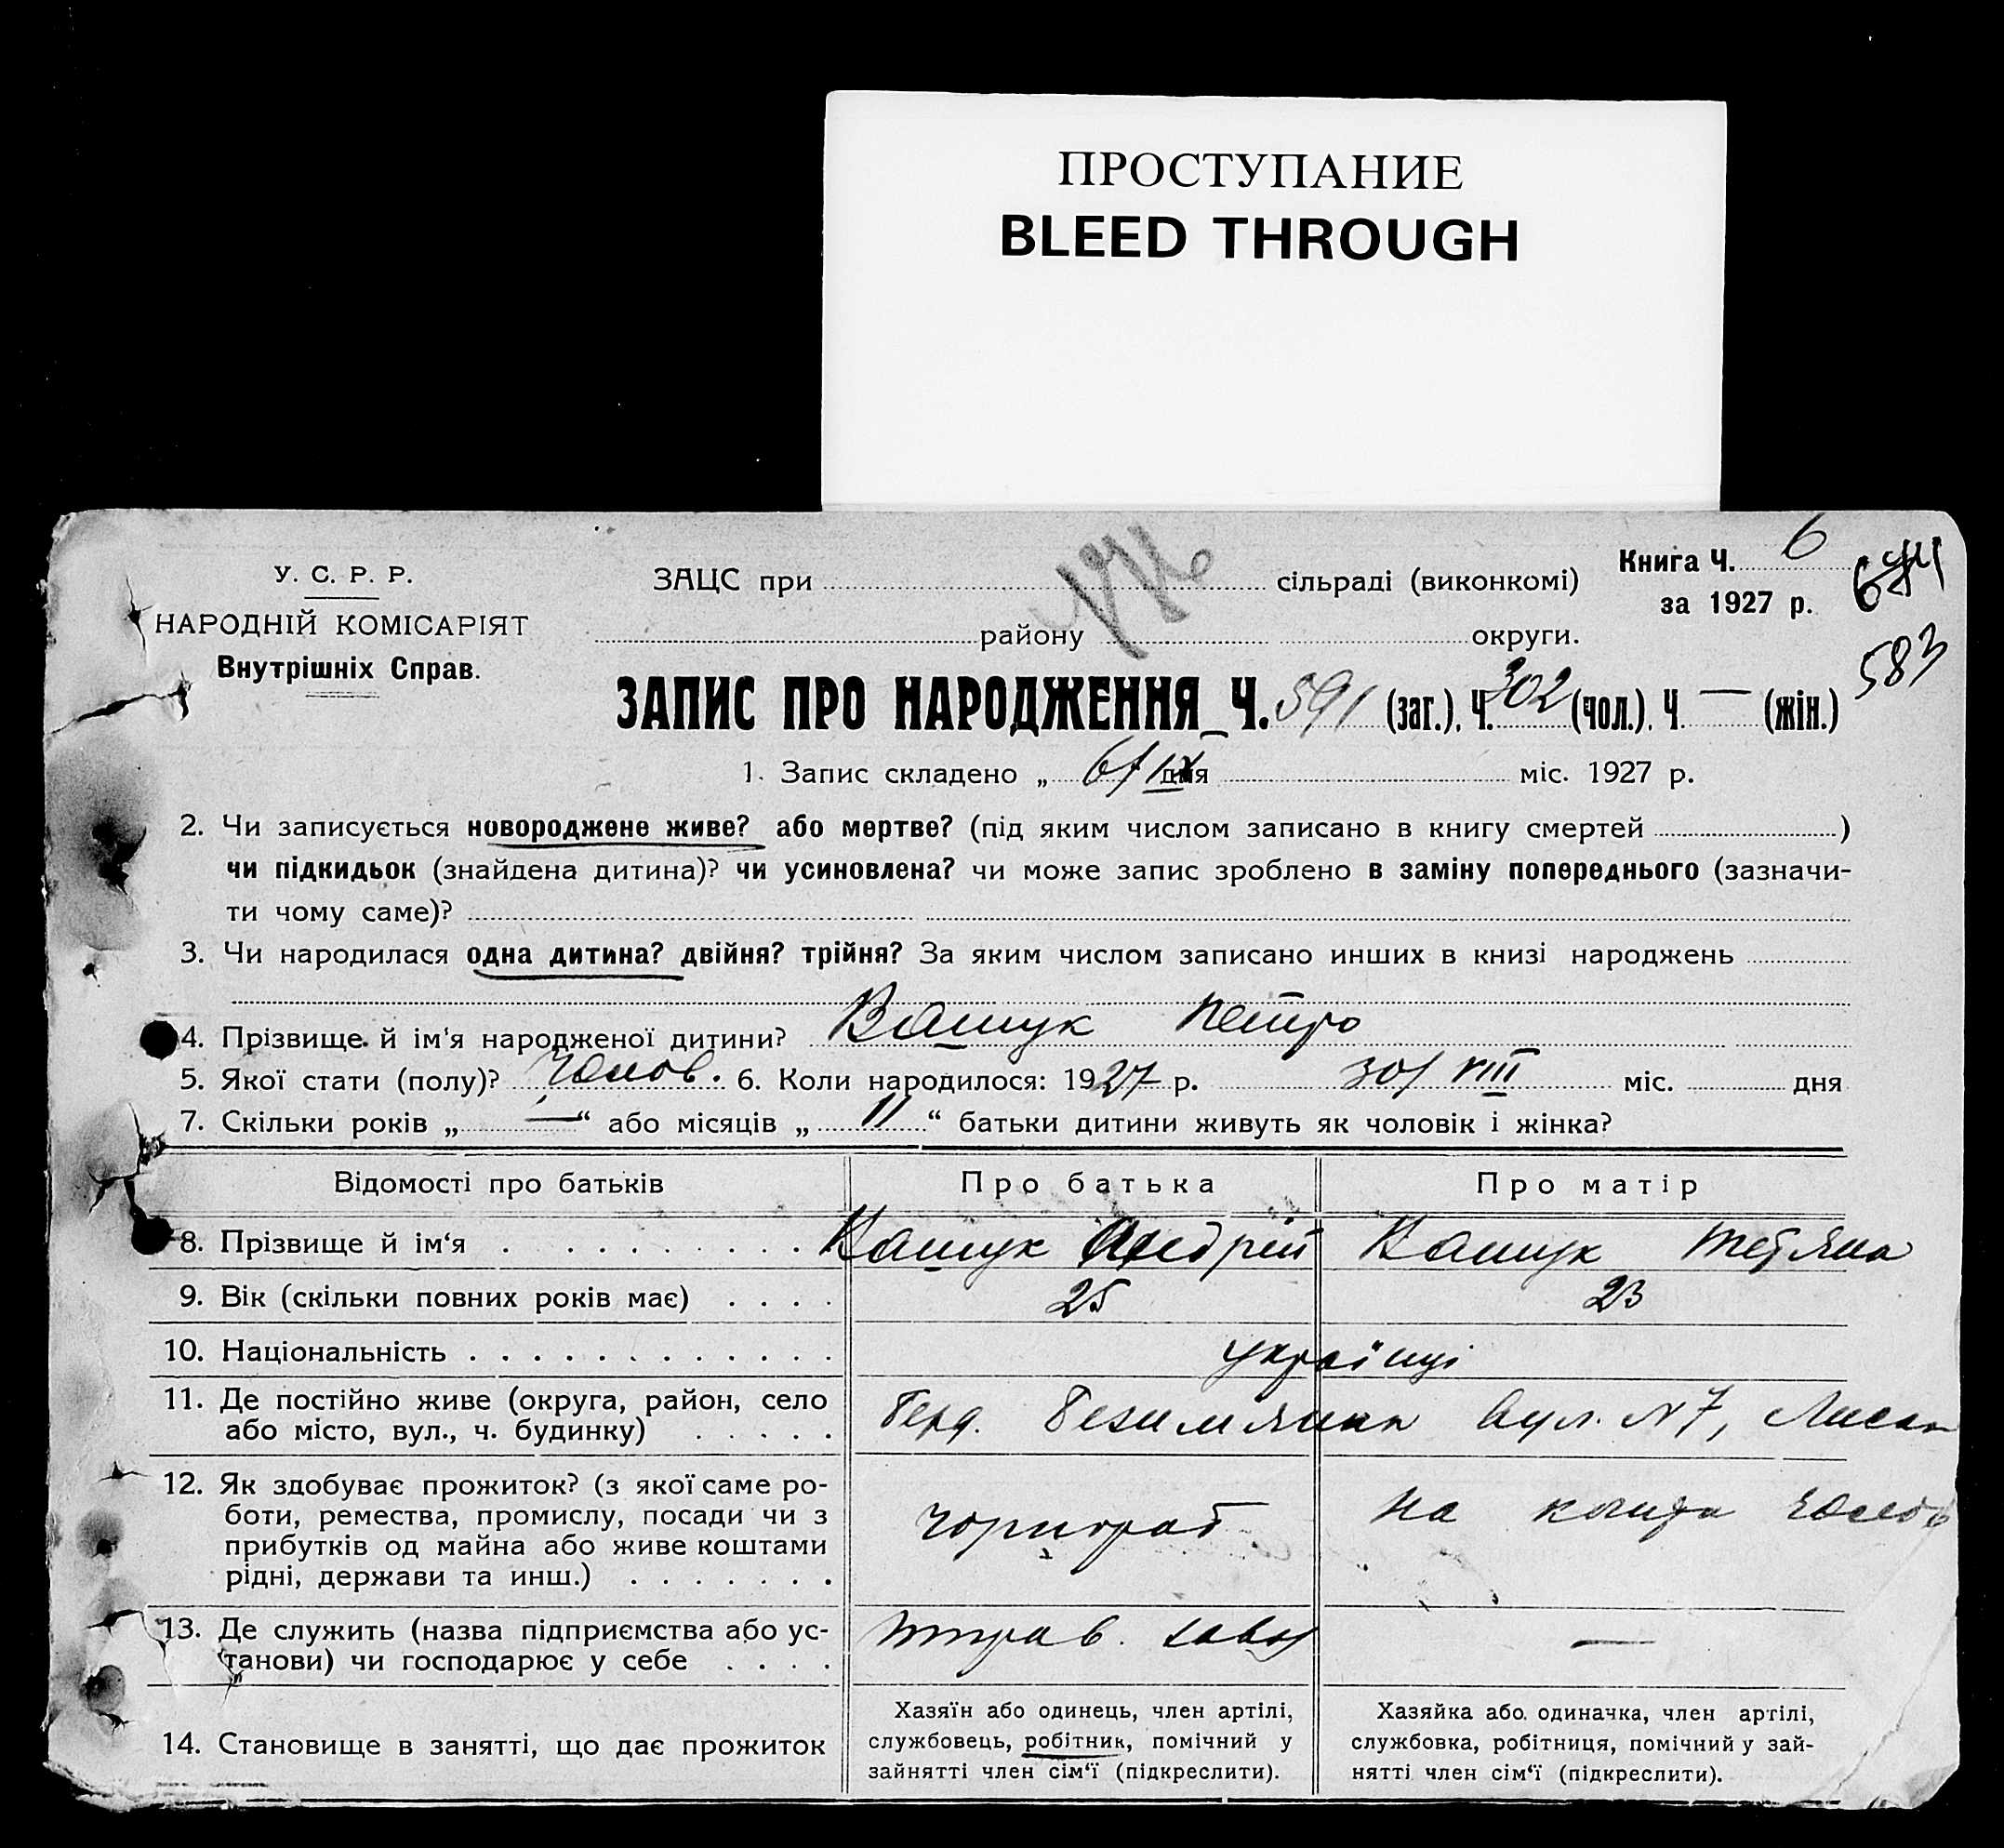 ПРОСТУПАНИЕ
BLEED THROUGH
У. С. Р. Р.
НАРОДНІЙ КОМІСАРІЯТ
Внутрішніх Справ.
ЗАЦС при сільраді (виконкомі)
району округи.
Книга Ч. 6
за 1927 р.
583
ЗАПИС ПРО НАРОДЖЕННЯ Ч. 591 (заг.). Ч. 302 (чол.). Ч. — (жін.)
1. Запис складено „ 6/IX дня міс. 1927 р.
2. Чи записується новороджене живе? або мертве? (під яким числом записано в книгу смертей )
чи підкидьок (знайдена дитина)? чи усиновлена? чи може запис зроблено в заміну попереднього (зазначи-
ти чому саме)?
3. Чи народилася одна дитина? двійня? трійня? За яким числом записано инших в книзі народжень
4. Прізвище й ім'я народженої дитини? Ващук Петро
5. Якої стати (полу)? Чолов. 6. Коли народилося: 1927 р. 30/VIII міс. дня
7. Скільки років „ — “ або місяців „ 11 “ батьки дитини живуть як чоловік і жінка?
Відомості про батьків Про батька Про матір
8. Прізвище й ім‘я Ващук Андрій Ващук Тетяна
9. Вік (скільки повних років має) 25 23
10. Національність українці
11. Де постійно живе (округа, район, село
або місто, вул., ч. будинку)
Берд. Безимянна вул. №7,
12. Як здобуває прожиток? (з якої саме ро-
боти, ремества, промислу, посади чи з
прибутків од майна або живе коштами
рідні, держави та инш.)
чорнораб
на кошта чолов
13. Де служить (назва підприємства або ус-
танови) чи господарює у себе
завод
—
14. Становище в занятті, що дає прожиток
Хазяїн або одинець, член артілі,
службовець, робітник, помічний у
зайнятті член сім‘ї (підкреслити).
Хазяйка або одиначка, член артілі,
службовка, робітниця, помічний у зай-
нятті член сім‘ї (підкреслити).